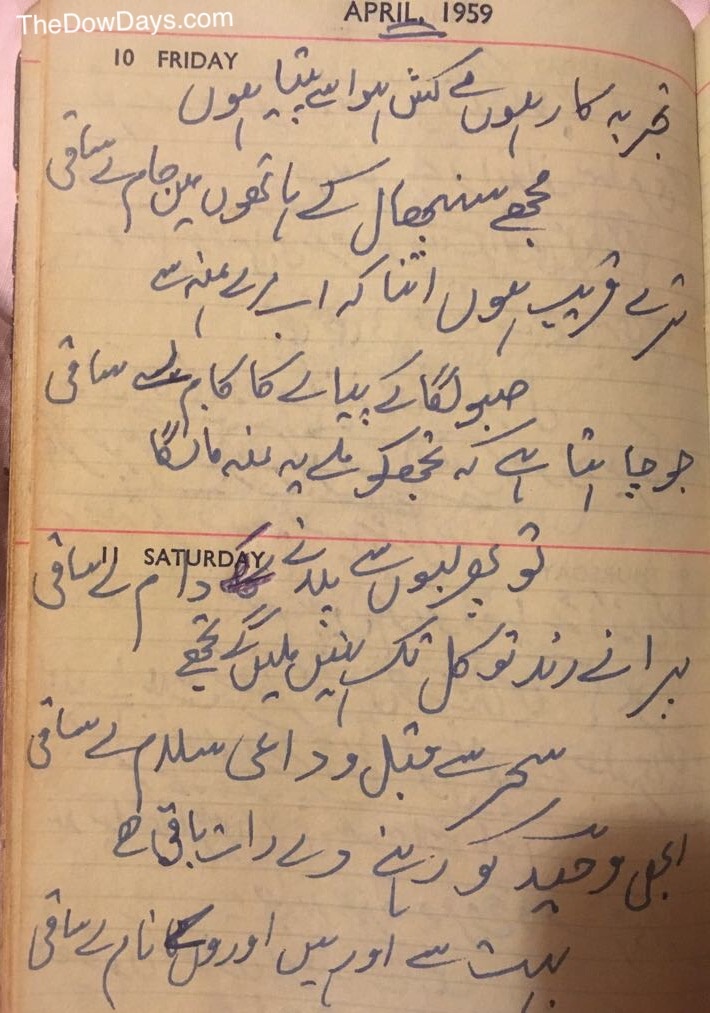 TheDowDays.com
APRIL, 1959
10 FRIDAY
تجربہ کار ہوں مے کش ہوا سے پیتا ہوں
مجھے سنبھال کے ہاتھوں میں جام لے ساقی
ترے قریب ہوں اتنا کہ اب مرے منہ سے
صبو لگا کے پیالے کا کام لے ساقی
جو چاہتا ہے کہ تجھکو ملے یہ منہ مانگا
11 SATURDAY
تو پھر لبوں سے پلانے کے دام لے ساقی
پرانے رند تو کل تک نہیں ملیں گے تجھے
سحر سے قبل وداعی سلام لے ساقی
ابھی وحید کو رہنے دے رات باقی ہے
بہت سے اور ہیں اوروں کا نام لے ساقی